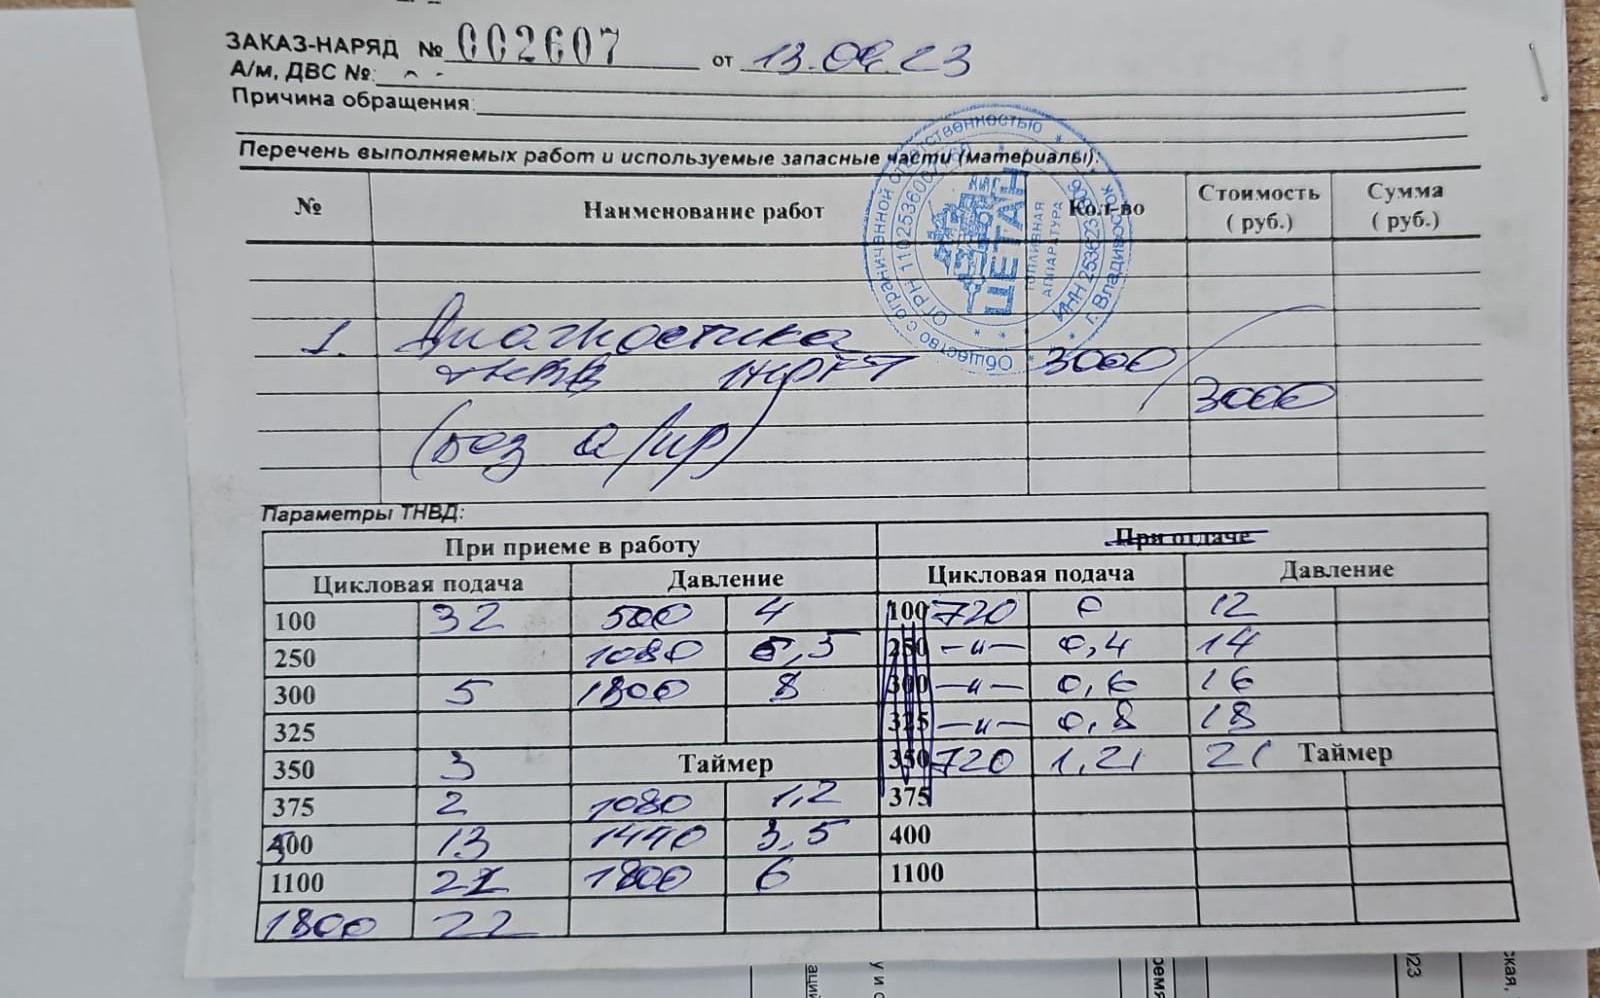 ЗАКАЗ-НАРЯД № 002607 от 13.09.23
А/м, ДВС №:
Причина обращения:
Перечень выполняемых работ и используемые запасные части (материалы):
№ Наименование работ Кол-во Стоимость ( руб.) Сумма ( руб.)
Общество с ограниченной ответственностью
г. Владивосток
ЦЕТАН
ТОПЛИВНАЯ
АППАРАТУРА
1. Диагностика 3000
ТНВД 3000
(без с/пр)
Параметры ТНВД:
При приеме в работу При отдаче
Цикловая подача Давление Цикловая подача Давление
100 32 500 4 100 720 0 12
250 1080 5,5 250 -"- 0,4 14
300 5 1800 8 300 -"- 0,6 16
325 325 -"- 0,8 18
350 3 Таймер 350 720 1,21 21 Таймер
375 2 1080 1,2 375
500 13 1440 3,5 400
1100 21 1800 6 1100
1800 22